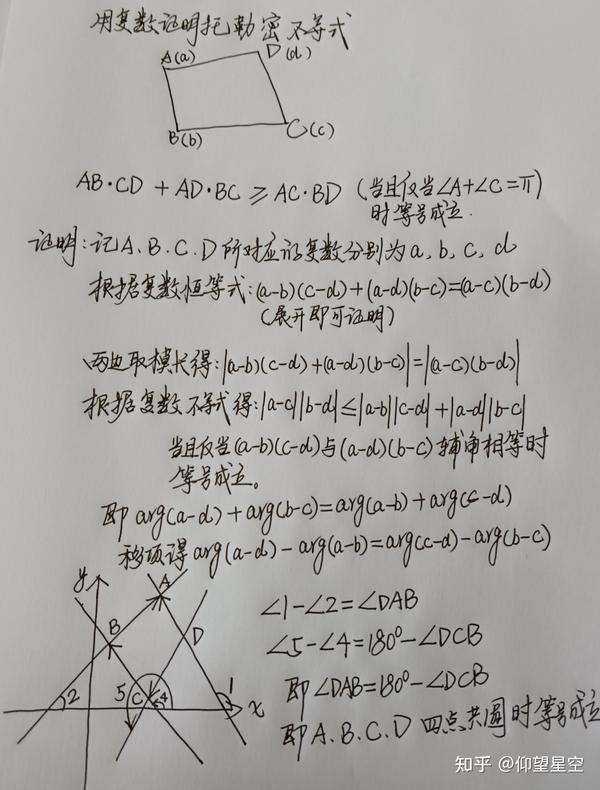 用复数证明托勒密不等式
A(a)
D(d)
B(b)
C(c)
AB·CD + AD·BC ≥ AC·BD (当且仅当∠A+∠C=π)
时等号成立.
证明:记A.B.C.D所对应的复数分别为a,b,c,d
根据复数恒等式:(a-b)(c-d)+(a-d)(b-c)=(a-c)(b-d)
(展开即可证明)
两边取模长得:|(a-b)(c-d)+(a-d)(b-c)|=|(a-c)(b-d)|
根据复数不等式得:|a-c||b-d|≤|a-b||c-d|+|a-d||b-c|
当且仅当(a-b)(c-d)与(a-d)(b-c)辐角相等时
等号成立。
即 arg(a-d)+arg(b-c)=arg(a-b)+arg(c-d)
移项得 arg(a-d)-arg(a-b)=arg(c-d)-arg(b-c)
y
A
B
D
2
5
C
4
1
x
∠1-∠2=∠DAB
∠5-∠4=180°-∠DCB
即∠DAB=180°-∠DCB
即A.B.C.D 四点共圆时等号成立
知乎 @仰望星空